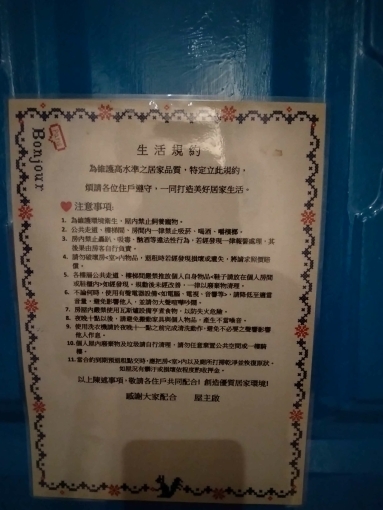 Bonjour
生活規約
為維護高水準之居家品質，特定立此規約，
煩請各位住戶遵守，一同打造美好居家生活。
注意事項:
1. 為維護環境衛生，屋內禁止飼養寵物。
2. 公共走道、樓梯間、房間內一律禁止吸菸、喝酒、嚼檳榔。
3. 房內禁止聚賭、吸毒、酗酒等違法性行為，若經發現一律報警處理，其
後果由房客自行負責。
4. 請勿破壞房<室>內物品，退租時若經發現損壞或遺失，將請求照價賠
償。
5. 各樓層公共走道、樓梯間嚴禁堆放個人自身物品，鞋子請放在個人房間
或鞋櫃內，如經發現，規勸後未經改善，一律以廢棄物清理。
6. 不論何時，使用有聲電器設備<如電腦、電視、音響等>，請降低至適度
音量，避免影響他人，並請勿大聲喧嘩吵鬧。
7. 房屋內嚴禁使用瓦斯爐設備烹煮食物，以防失火危險。
8. 夜晚十點以後，請避免搬動家具與個人物品，產生不當噪音。
9. 使用洗衣機請於夜晚十一點之前完成清洗動作，避免不必要之聲響影響
他人作息。
10. 個人屋內廢棄物及垃圾請自行清理，請勿任意棄置公共空間或一樓騎
樓。
11. 當合約到期預退租點交時，應把房<室>內以及廁所打掃乾淨並恢復原狀，
如屋況有髒汙或損壞依程度酌收押金。
以上陳述事項，敬請各住戶共同配合! 創造優質居家環境!
感謝大家配合 屋主啟